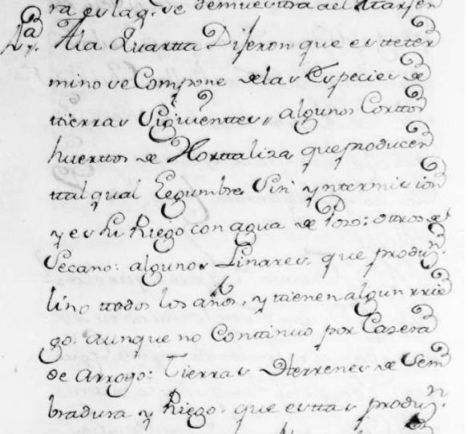 ra es la q.e se demuestra del Marjen
4.a A la Quartta Dijeron que este ter
mino se Compone de las Especies de
ttierras Siguienttes, algunos Corttos
huerttos de Horttaliza que producen
ttal qual Legumbre Sin ynttermision
y es su Riego con agua de Pozo: otros de
Secano: algunos Linares que produz.n
lino ttodos los años, y ttienen algun rrie
go aunque no Continuo por Casera
de Arroyo: Tierras Therrenes de Sem
bradura y Riego que esttas produz.n